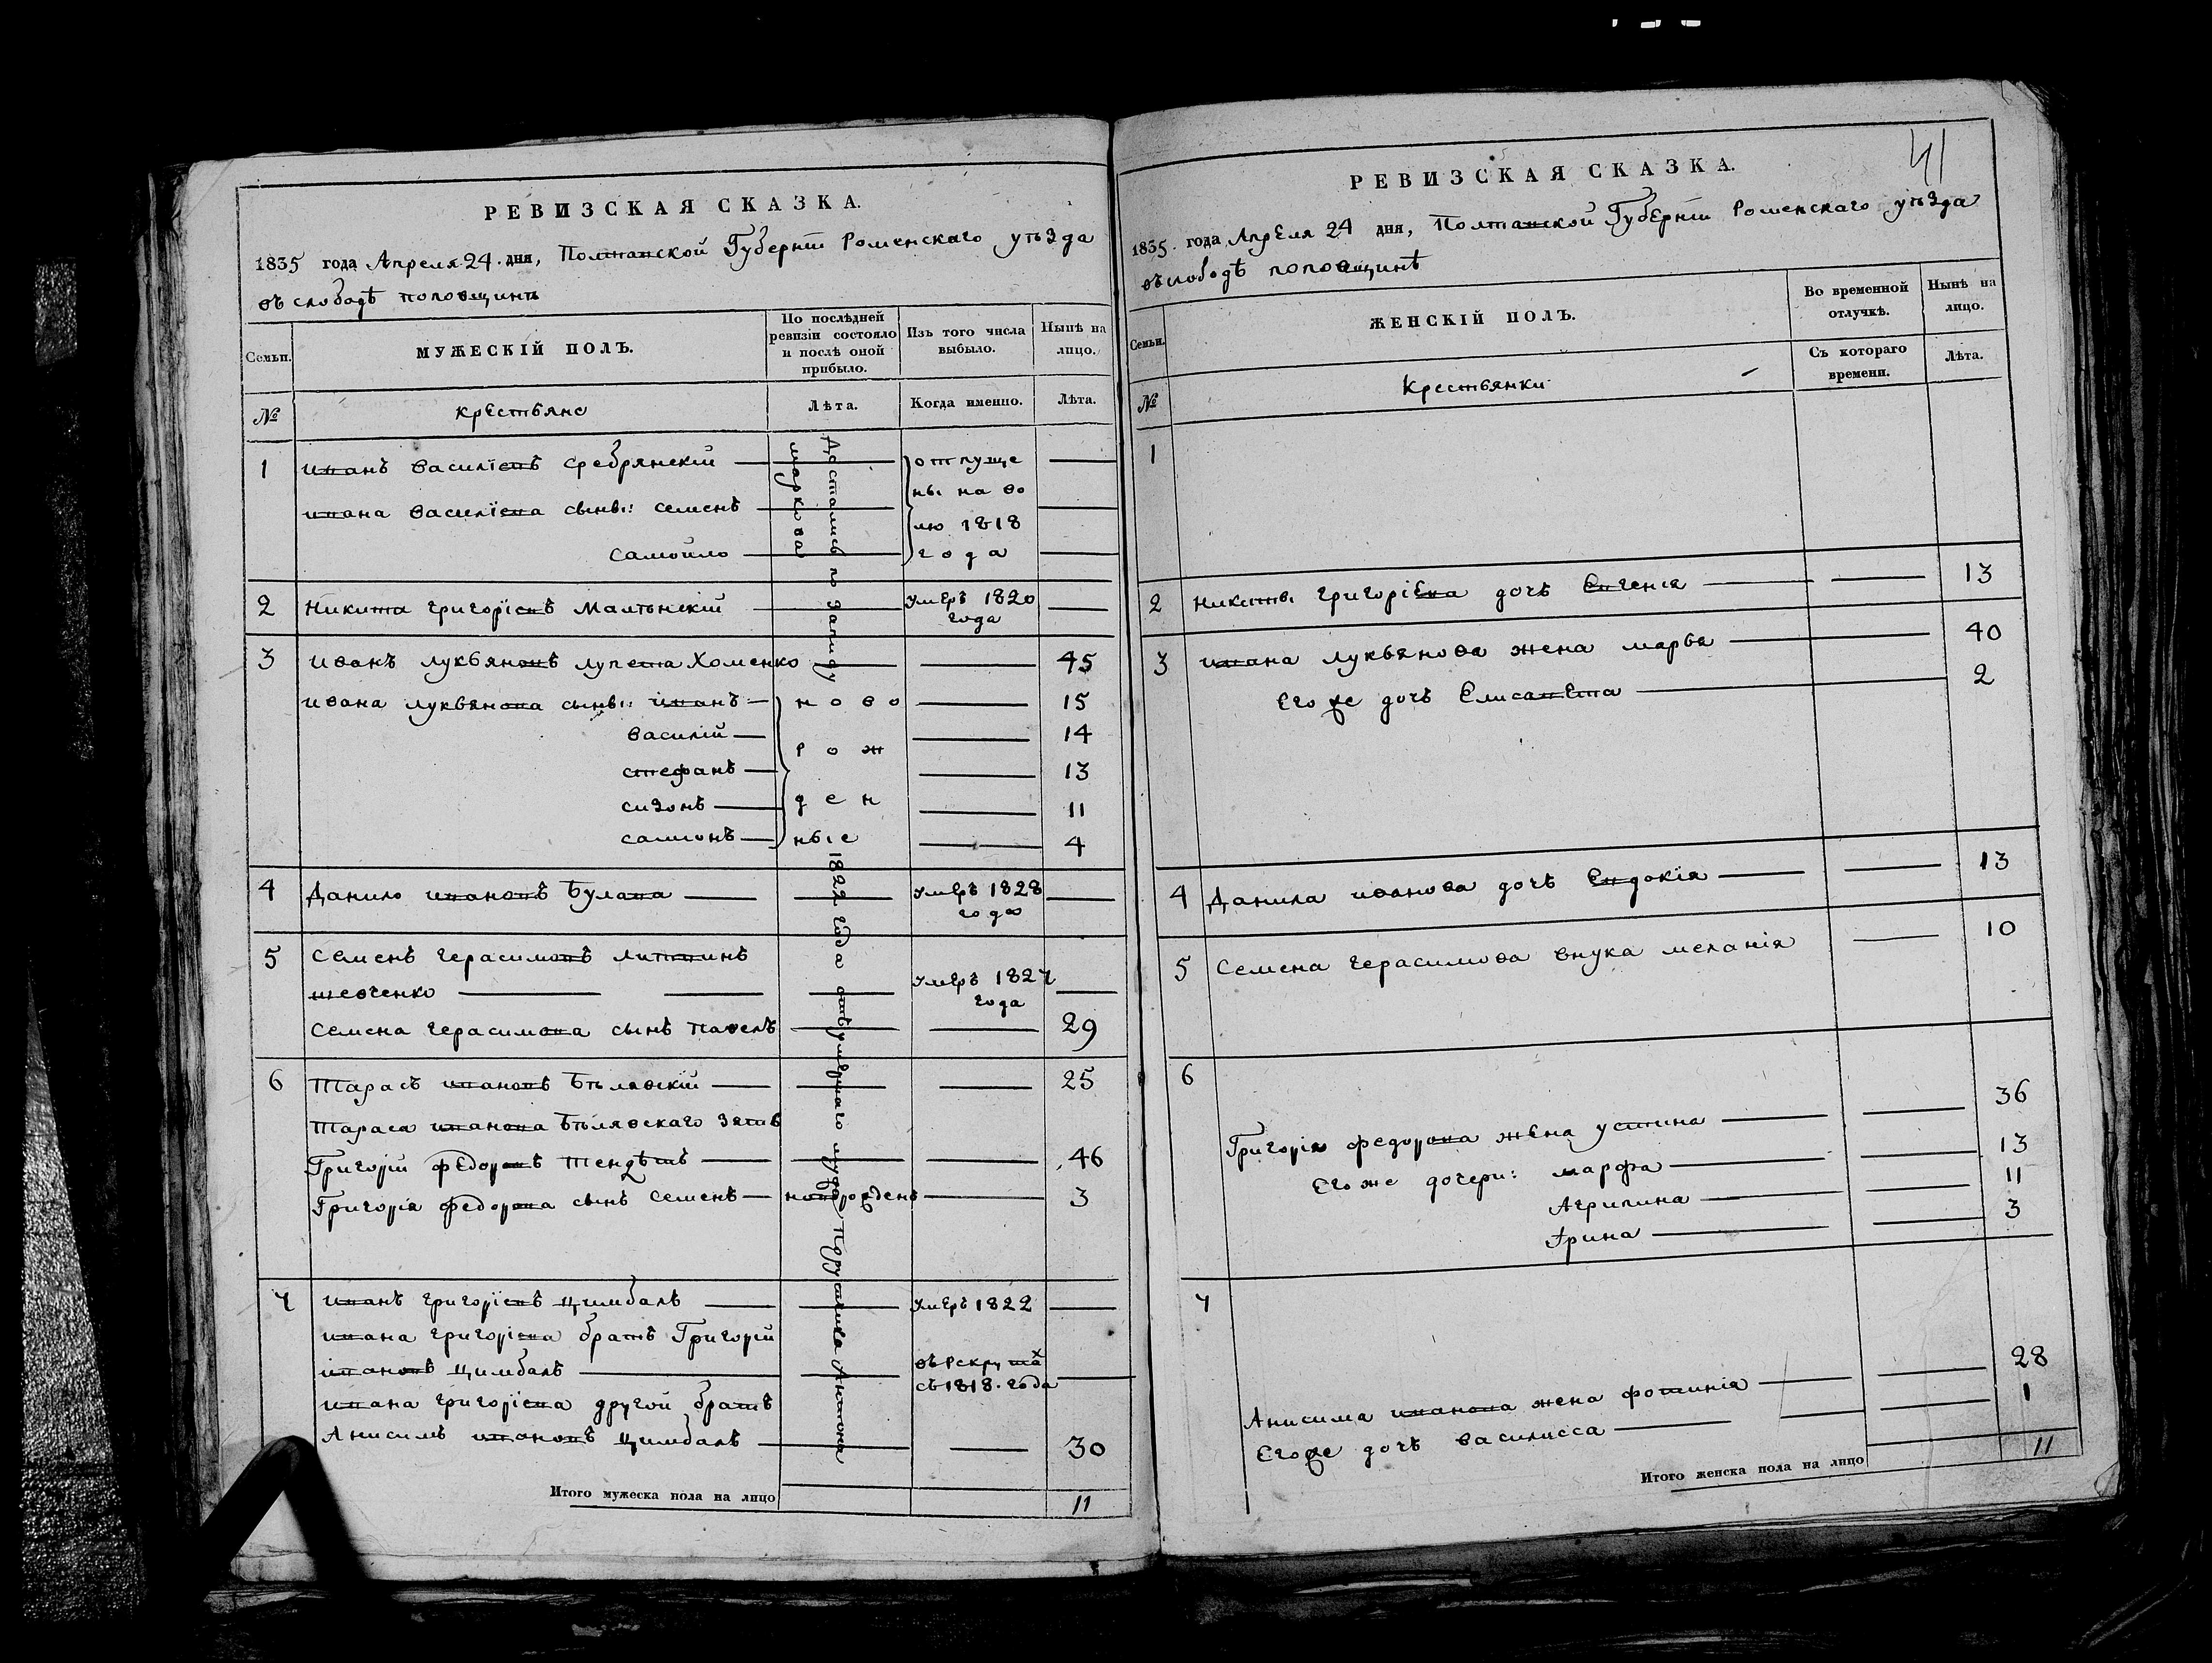 РЕВИЗСКАЯ СКАЗКА.
1835 года Апреля 24. дня, Полтавской Губерніи Роменскаго уѣзда
въ слободѣ поповщинѣ
Семьи.
МУЖЕСКІЙ ПОЛЪ.
По послѣдней ревизіи состояло и послѣ оной прибыло.
Изъ того числа выбыло.
Нынѣ на лицо.
№
крестьяне
Лѣта.
Когда именно.
Лѣта.
1 иванъ василіевъ сребрянскій отпуще
ны на во
ивана василіева сыны: семенъ лю 1818
самойло года
2 Никита григоріевъ умеръ 1820
года
3 иванъ лукьяновъ лупета Хоменко 45
ивана лукьянова сыны: иванъ ново 15
василій 14
рож
стефанъ 13
сизонъ ден 11
самсонъ ные 4
4 Данило ивановъ Булава умеръ 1828
года
5 Семенъ герасимовъ литвинъ
шевченко умеръ 1827
года
Семена герасимова сынъ павелъ 29
6 Тарасъ ивановъ Бѣлявскій 25
Тараса иванова Бѣлявскаго зять
Григорій федоровъ 46
Григорія федорова сынъ Семенъ новорожденъ 3
7 иванъ григоріевъ цимбалъ умеръ 1822
ивана григоріева братъ Григорій
ивановъ цимбалъ въ рекрутах
съ 1818. года
ивана григоріева другой братъ
Анисимъ ивановъ цимбалъ 30
Итого мужеска пола на лицо 11
Достались по запису 1822 года отъ умершаго мужа Порутчика Антона
маркова
41
РЕВИЗСКАЯ СКАЗКА.
1835. года Апреля 24 дня, Полтавской Губерніи Роменскаго уѣзда
въ слободѣ поповщинѣ
Семьи.
ЖЕНСКІЙ ПОЛЪ.
Во временной отлучкѣ.
Нынѣ на лицо.
Съ котораго времени.
Лѣта.
№
Крестьянки
1
2 никиты григоріева дочь Евгенія 13
3 ивана лукьянова жена марья 40
Его же дочь Елисавета 2
4 Данила иванова дочь Евдокія 13
5 Семена герасимова внука меланія 10
6
Григорія федорова жена устина 36
Его же дочери: марфа 13
Агрипина 11
Ирина 3
7
Анисима иванова жена фотинія 28
Его же дочь василисса 1
Итого женска пола на лицо 11